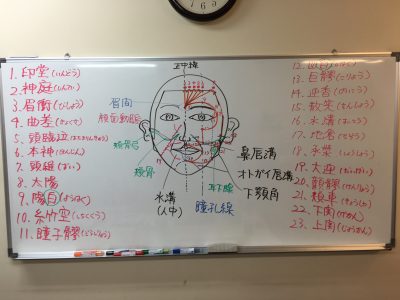 1. 印堂(いんどう)
2. 神庭(しんてい)
3. 眉衝(びしょう)
4. 曲差(きょくさ)
5. 頭臨泣(あたまりんきゅう)
6. 本神(ほんじん)
7. 頭維(ずい)
8. 太陽
9. 陽白(ようはく)
10. 糸竹空(しちくくう)
11. 瞳子髎(どうしりょう)
正中線
眉間
顔面動脈
頬骨弓
頬骨
水溝
(人中)
瞳孔線
耳下腺
鼻唇溝
オトガイ唇溝
下顎角
12. 四白(しはく)
13. 巨髎(こりょう)
14. 迎香(げいこう)
15.
16. 水溝(すいこう)
17. 地倉(ちそう)
18. 承漿(しょうしょう)
19. 大迎(だいげい)
20. 顴髎(けんりょう)
21. 頬車(きょうしゃ)
22. 下関(げかん)
23. 上関(じょうかん)